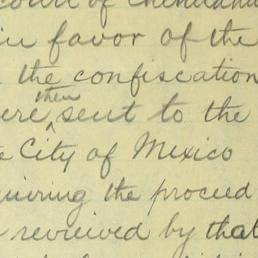 court of Chihuahua
in favor of the
the confiscation
ere then sent to the
e City of Mexico
uiring the proceed
reviewed by that